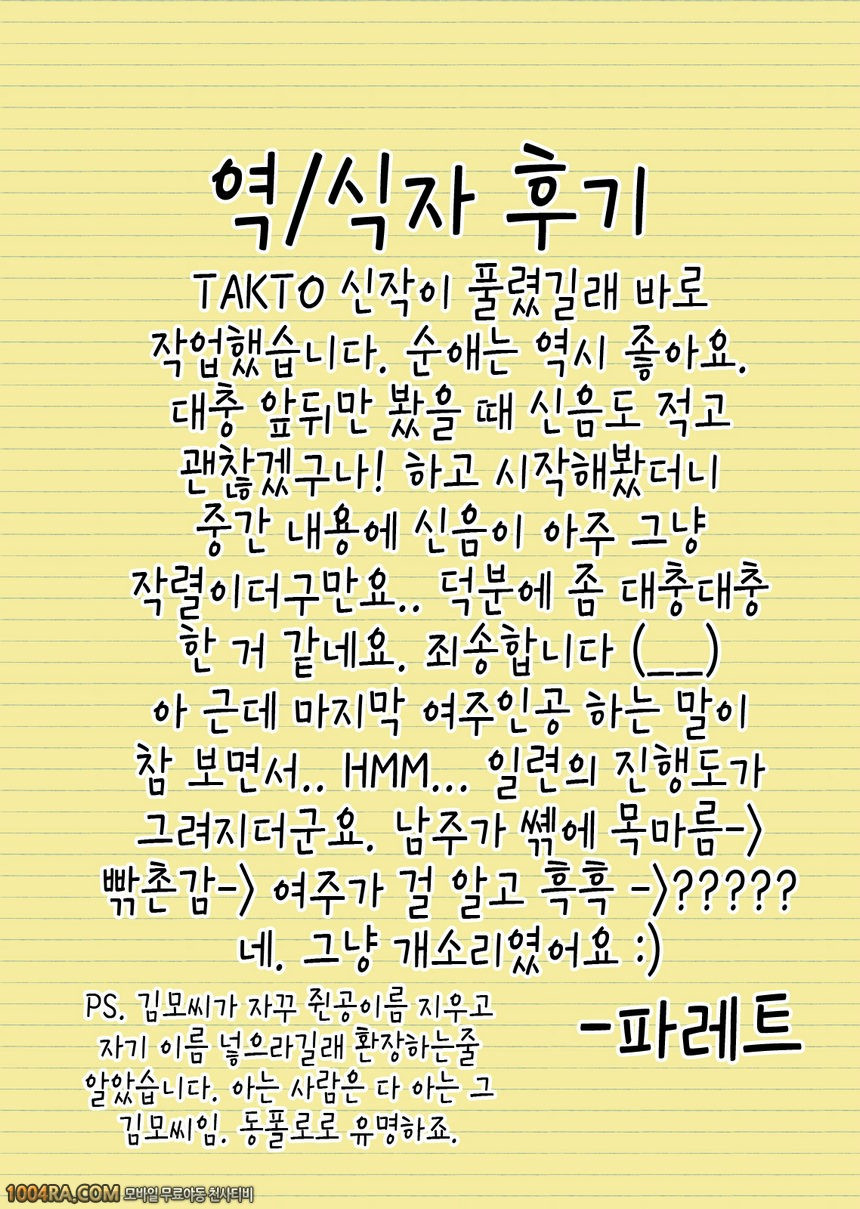 역/식자 후기
TAKTO 신작이 풀렸길래 바로
작업했습니다. 순애는 역시 좋아요.
대충 앞뒤만 봤을 때 신음도 적고
괜찮겠구나! 하고 시작해봤더니
중간 내용에 신음이 아주 그냥
작렬이더구만요.. 덕분에 좀 대충대충
한 거 같네요. 죄송합니다 (__)
아 근데 마지막 여주인공 하는 말이
참 보면서.. HMM... 일련의 진행도가
그려지더군요. 남주가 쎆에 목마름->
빾촌감-> 여주가 걸 알고 흑흑 ->?????
네. 그냥 개소리였어요 :)
PS. 김모씨가 자꾸 쥔공이름 지우고
자기 이름 넣으라길래 환장하는줄
알았습니다. 아는 사람은 다 아는 그
김모씨임. 동폴로로 유명하죠.
-파레트
1004RA.COM 모바일 무료야동 천사티비